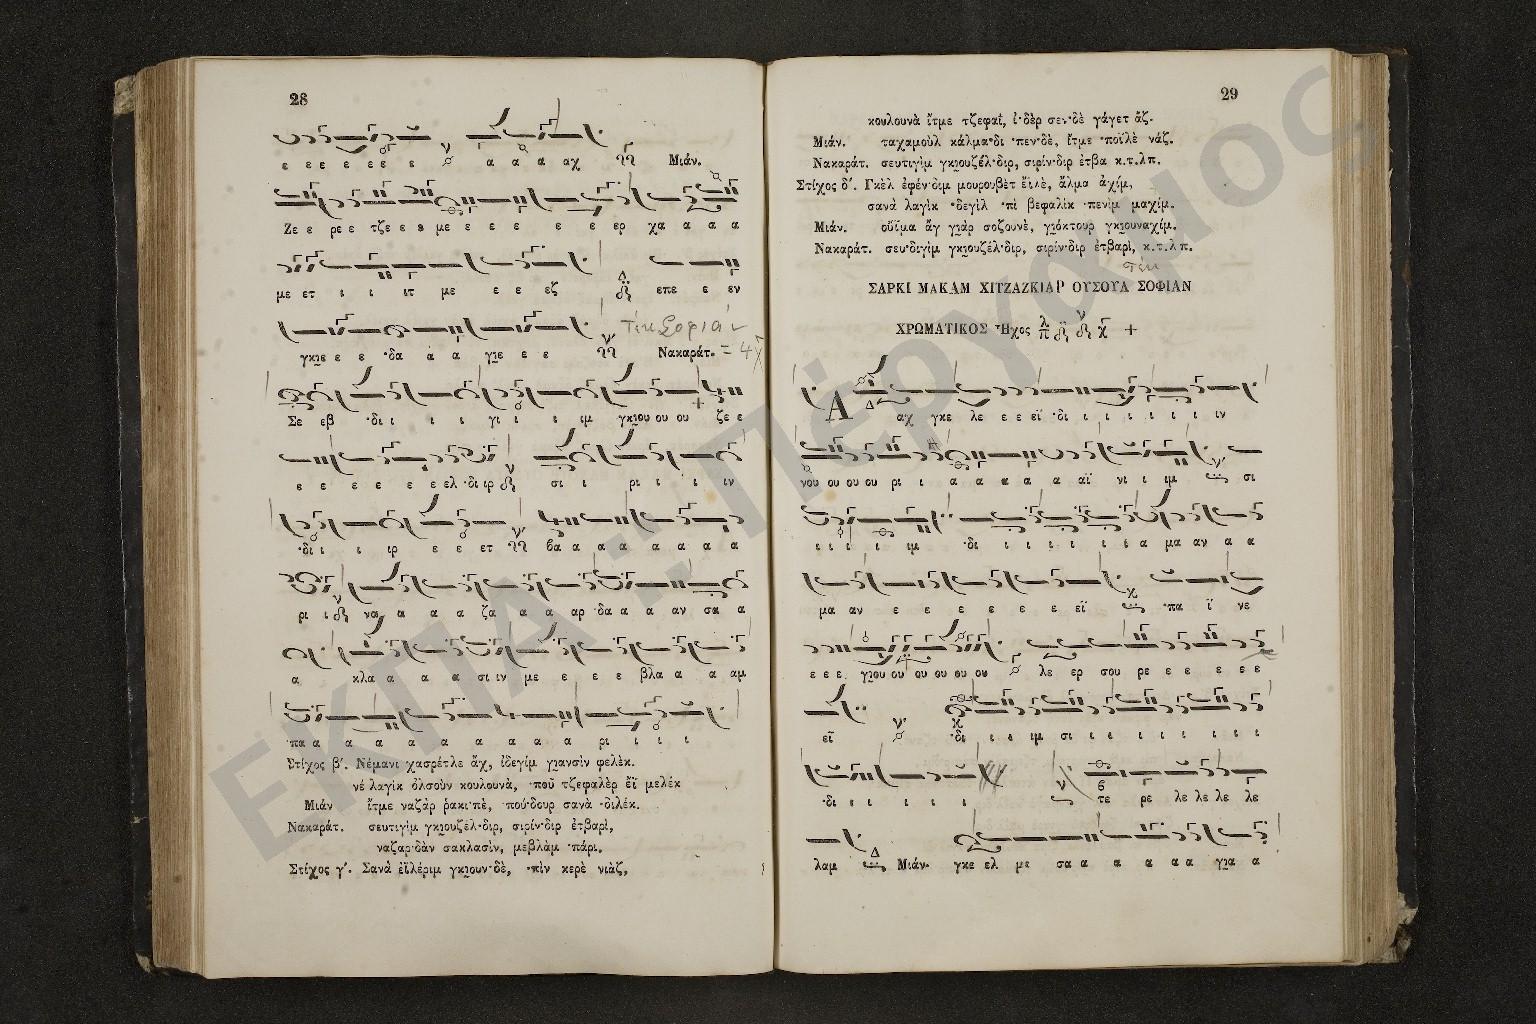 28
ε ε ε ε ε ε ε α α α αχ Μιάν.
Ζε ε ρε ε τζε ε ε με ε ε ε ε ε ερ χα α α α
με ετ ι ι ιτ με ε ε εζ επε ε εν
γκιε ε ε ·δα α α γιε ε ε Νακαράτ.
Σε εβ ·δι ι ι ι γι ι ι ιμ γκιου ου ου ζε ε
ε ε ε ε ε ε ελ ·δι ιρ σι ι ρι ι ι ιν
·δι ι ι ιρ ε ε ετ βα α α α α α α α
ρι ι να α α α ζα α α αρ ·δα α α αν σα α
α κλα α α α σι ιν με ε ε ε βλα α α αμ
·πα α α α α α α α α α ρι ι ι ι
Στίχος β΄. Νέμανι χασρέτλε ἄχ, ἰδεγίμ γιανσὶν φελὲκ.
νέ λαγὶκ ὀλσοὺν κουλουνὰ, ·ποῦ τζεφαλὲρ ἔϊ μελέκ
Μιάν ἴτμε ναζὰρ ῥακι·πὲ, ·πού·δουρ σανὰ ·διλέκ.
Νακαράτ. σευτιγὶμ γκιουζέλ·διρ, σιρίν·διρ ἐτβαρὶ,
ναζαρ·δὰν σακλασὶν, μεβλὰμ ·πάρι.
Στίχος γ΄. Σανὰ ἐϊλέριμ γκιουν·δὲ, ·πὶν κερὲ νιὰζ,
29
κουλουνὰ ἴτμε τζεφαῒ, ἰ·δὲρ σεν·δὲ γάγετ ἄζ.
Μιάν. ταχαμοὺλ κάλμα·δι ·πεν·δὲ, ἴτμε ·ποϊλὲ νάζ.
Νακαράτ. σευτιγὶμ γκιουζέλ·διρ, σιρίν·διρ ἐτβα κ.τ.λπ.
Στίχος δ΄. Γκὲλ ἐφέν·διμ μουρουβὲτ ἔϊλὲ, ἄλμα ἀχίμ,
σανὰ λαγὶκ ·δεγὶλ ·πὶ βεφαλὶκ ·πενὶμ μαχίμ.
Μιάν. οὔϊμα ἄγ γιὰρ σοζουνὲ, γιόκτουρ γκιουναχίμ.
Νακαράτ. σευ·διγὶμ γκιουζέλ·διρ, σιρίν·διρ ἐτβαρὶ, κ.τ.λπ.
ΣΑΡΚΙ ΜΑΚΑΜ ΧΙΤΖΑΖΚΙΑΡ ΟΥΣΟΥΛ ΣΟΦΙΑΝ
ΧΡΩΜΑΤΙΚΟΣ Ἦχος
Α αχ γκε λε ε ε εϊ ·δι ι ι ι ι ι ι ιν
νου ου ου ου ρι ι α α α α α αϊ νι ι ιμ σι
ι ι ι ι ιμ ·δι ι ι ι ι ι α μα αν α α
μα αν ε ε ε ε ε ε ε εϊ ·πα ϊ νε
ε ε ε γιου ου ου ου ου ου λε ερ σου ρε ε ε ε ε ε
εϊ ·δι ι ι ιμ σι ι ι ι ι ι ι
·δι ι ι ι ι ι τε ρε λε λε λε λε
λαμ Μιάν. γκε ελ με σα α α α α α α για α
ΕΚΠΑ: Πέργαμος